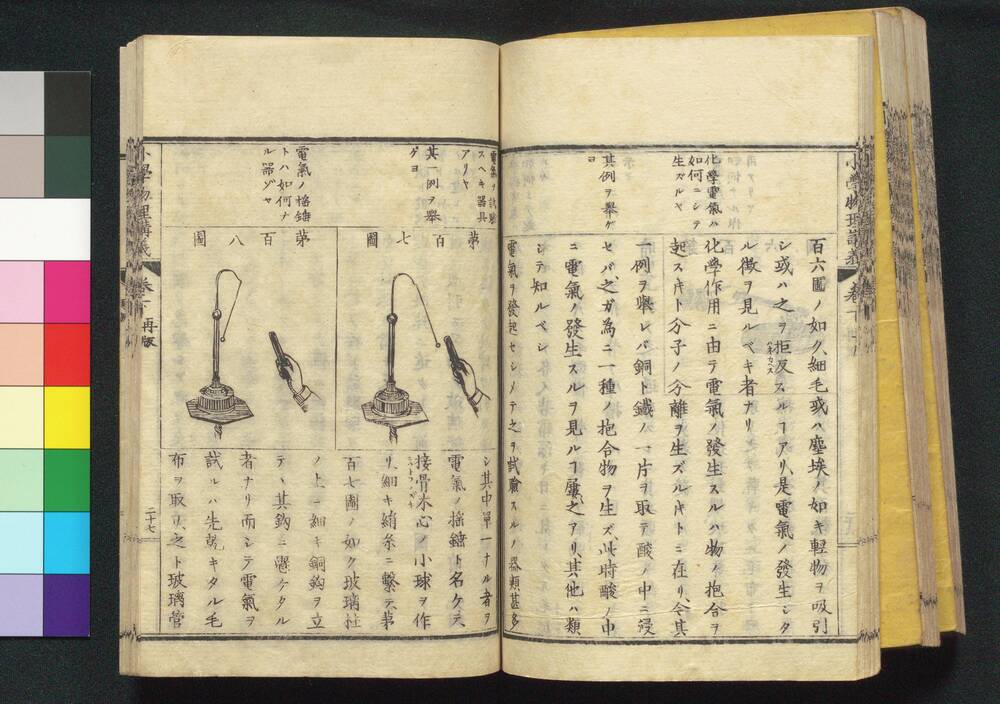 化學電氣ハ
如何ニシテ
生ズルヤ
其例ヲ舉ゲ
ヨ
百六圖ノ如ク、細毛或ハ塵埃ノ如キ輕物ヲ吸引
シ或ハ之ヲ拒反スルヿアリ、是電氣ノ發生シタ
ル徴ヲ見ルベキ者ナリ
化學作用ニ由テ電氣ノ發生スルハ物ノ抱合ヲ
起スキト分子ノ分離ヲ生ズルキトニ在リ、今其
一例ヲ舉レバ銅ト鐵ノ一片ヲ取テ酸ノ中ニ浸
セバ、之ガ為ニ一種ノ抱合物ヲ生ズ、此時酸ノ中
ニ電氣ノ發生スルヲ見ルヿ屢之アリ、其他ハ類
シテ知ルベシ
電氣ヲ試驗
スヘキ器具
アリヤ
其一例ヲ舉
ゲヨ
電氣ノ搖錘
トハ如何ナ
ル器ゾヤ
電氣ヲ發起セシメテ之ヲ試驗スルノ器類甚多
第百七圖
第百八圖
シ其中單一ナル者ヲ
電氣ノ搖錘ト名ク、乃
接骨木心ノ小球ヲ作
リ、細キ絹糸ニ繫テ、第
百七圖ノ如ク玻璃柱
ノ上ニ細キ銅鈎ヲ立
テ、其鈎ニ懸ケタル
者ナリ而シテ電氣ヲ
試ルハ先乾キタル毛
布ヲ取リ、之ト玻璃管
小學物理講義
卷下
再版
二十七